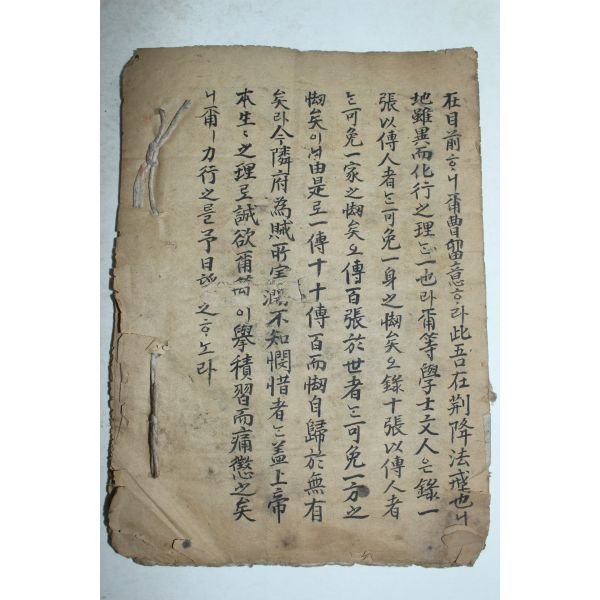 在目前ᄒᆞ니爾曹留意ᄒᆞ라此吾在荆降法戒也니
地雖異而化行之理ᄂᆞᆫ一也라爾等學士文人은錄一
張以傳人者ᄂᆞᆫ可免一身之㤼矣오錄十張以傳人者
ᄂᆞᆫ可免一家之㤼矣오傳百張於世者ᄂᆞᆫ可免一方之
㤼矣이니由是로一傳十十傳百而㤼自歸於無有
矣라今隣府爲賊所不知憫惜者ᄂᆞᆫ盖上帝
本生生之理로誠欲爾等이擧積習而痛懲之矣
니爾ㅣ力行之를予日之ᄒᆞ노라